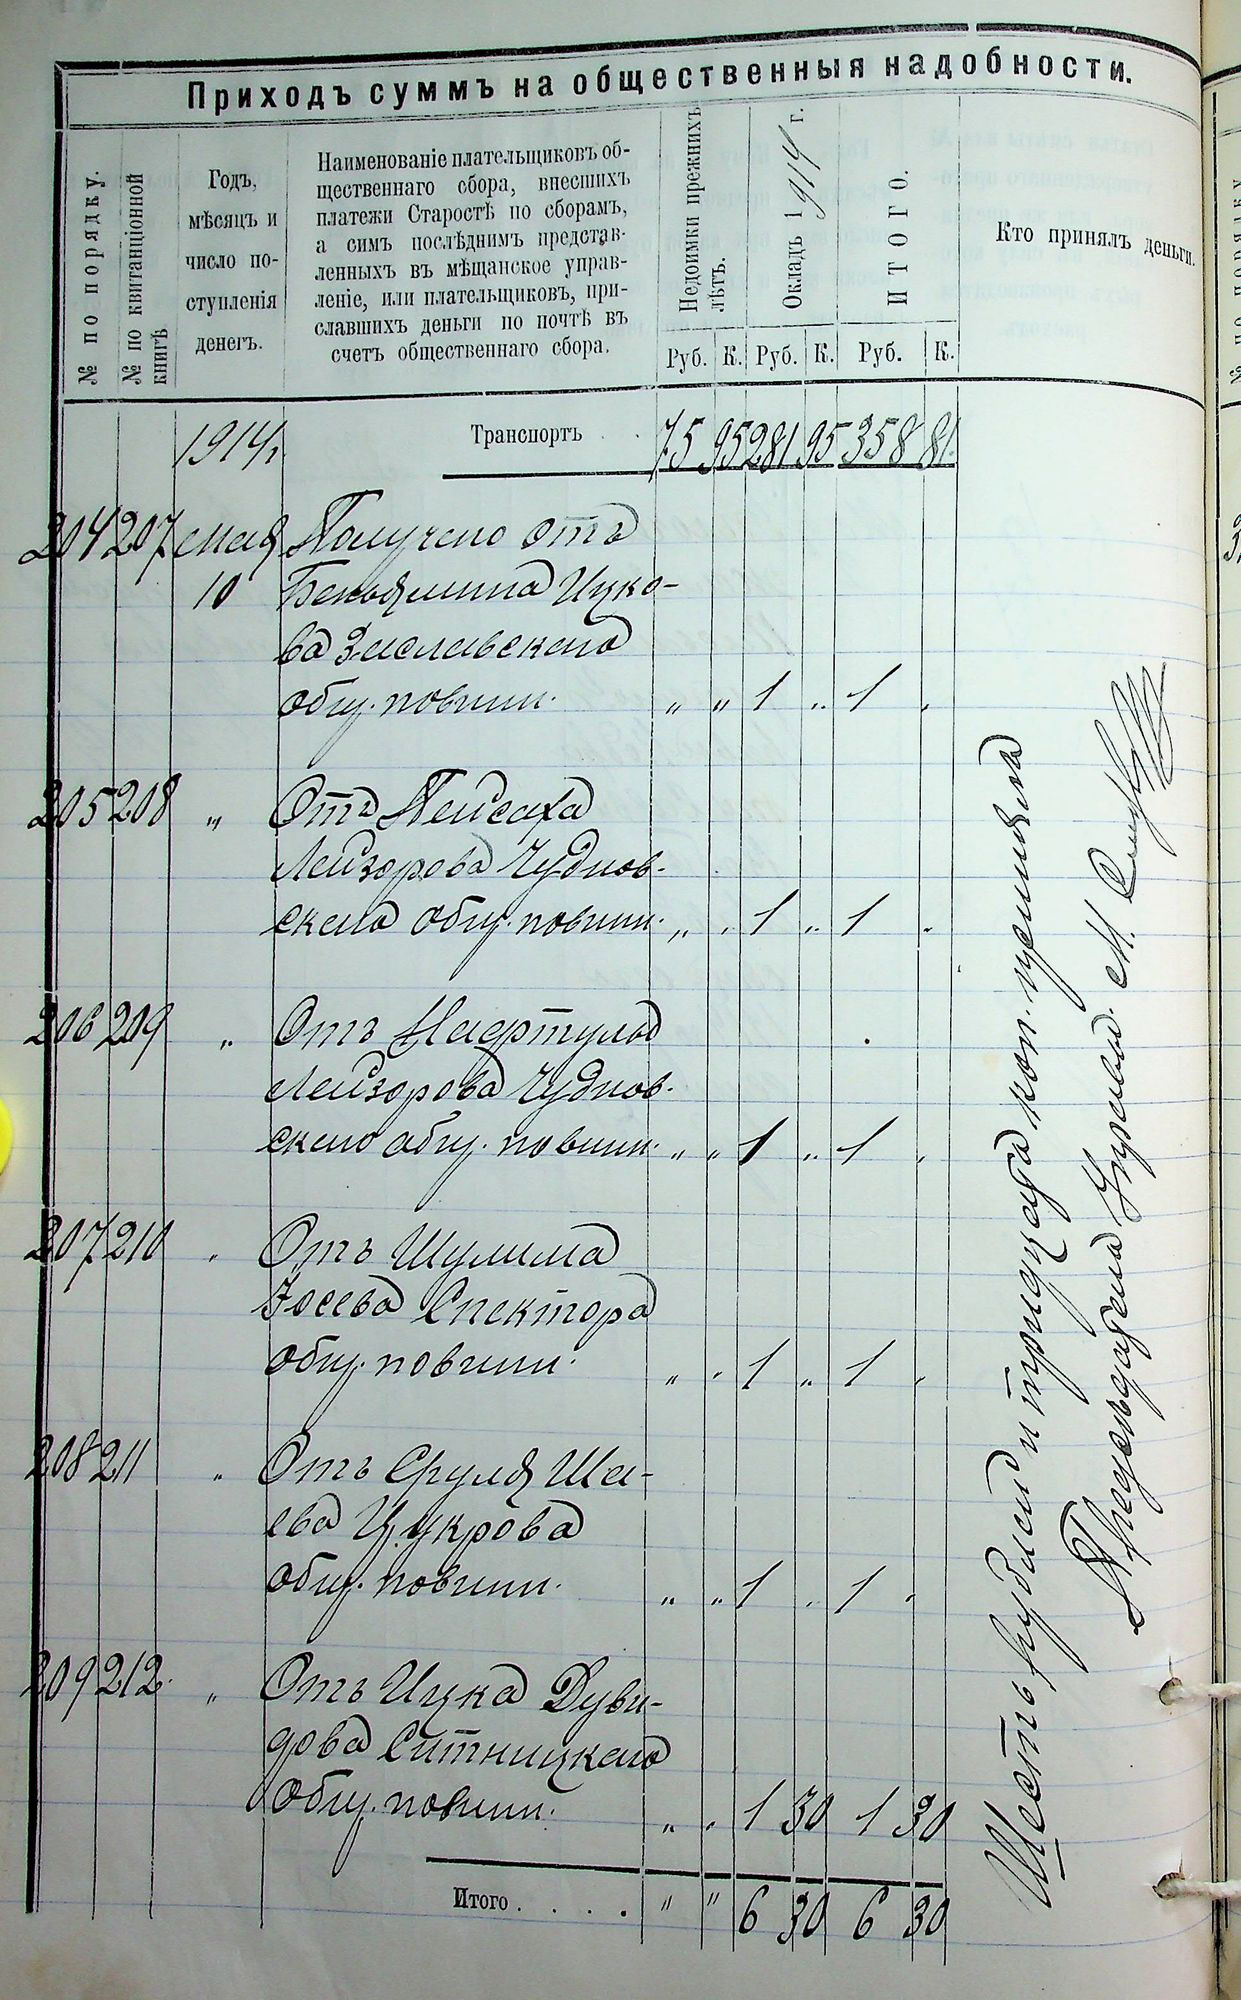 Приходъ суммъ на общественныя надобности.
№ по порядку.
№ по квитанціонной
книгѣ
Годъ,
мѣсяцъ и
число по-
ступленія
денегъ.
Наименованіе плательщиковъ об-
щественнаго сбора, внесшихъ
платежи Старостѣ по сборамъ,
а симъ послѣднимъ представ-
ленныхъ въ мѣщанское управ-
леніе, или плательщиковъ, при-
славшихъ деньги по почтѣ въ
счетъ общественнаго сбора.
Недоимки прежнихъ
лѣтъ.
Окладъ 1914 г.
ИТОГО.
Кто принялъ деньги.
Руб. К. Руб. К. Руб. К.
1914 г. Транспортъ . . 75 95 281 95 358 81
204 207 Мая Получено отъ
10 Беньямина Ицко-
ва Заславскаго
общ. повин. „ „ 1 „ 1 „
205 208 „ Отъ Пейсаха
Лейзорова Чуднов-
скаго общ. повин. „ „ 1 „ 1 „
206 209 „ Отъ Нафтула
Лейзорова Чуднов-
скаго общ. повин. „ „ 1 „ 1 „
207 210 „ Отъ Шулима
Іосева Спектора
общ. повин. „ „ 1 „ 1 „
208 211 „ Отъ Сруля Ша-
ева Цукрова
общ. повин. „ „ 1 „ 1 „
209 212. „ Отъ Ицка Дуви-
дова Ситницкаго
общ. повин. „ „ 1 30 1 30
Итого . . . . „ „ 6 30 6 30
Шесть рублей и тридцать коп. принялъ
Предсѣдатель Управы М.